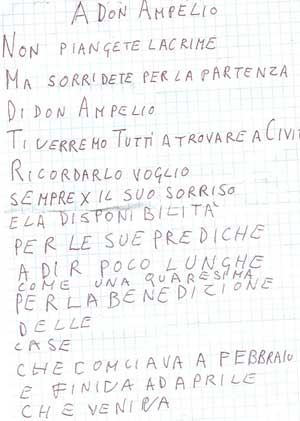 A DON AMPELIO
NON PIANGETE LACRIME
MA SORRIDETE PER LA PARTENZA
DI DON AMPELIO
TI VERREMO TUTTI A TROVARE A CIVIT
RICORDARLO VOGLIO
SEMPRE X IL SUO SORRISO
E LA DISPONIBILITÀ
PER LE SUE PREDICHE
A DIR POCO LUNGHE
COME UNA QUARESIMA
PER LA BENEDIZIONE
DELLE
CASE
CHE COMCIAVA A FEBBRAIO
E FINIVA AD APRILE
CHE VENIVA